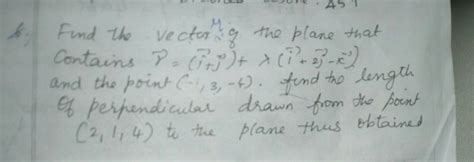 6. Find the vector eq of the plane that
Contains r⃗ = (i⃗+j⃗) + λ(i⃗+2j⃗-k⃗)
and the point (-1, 3, -4). find the length
Of perpendicular drawn from the point
(2, 1, 4) to the plane thus obtained